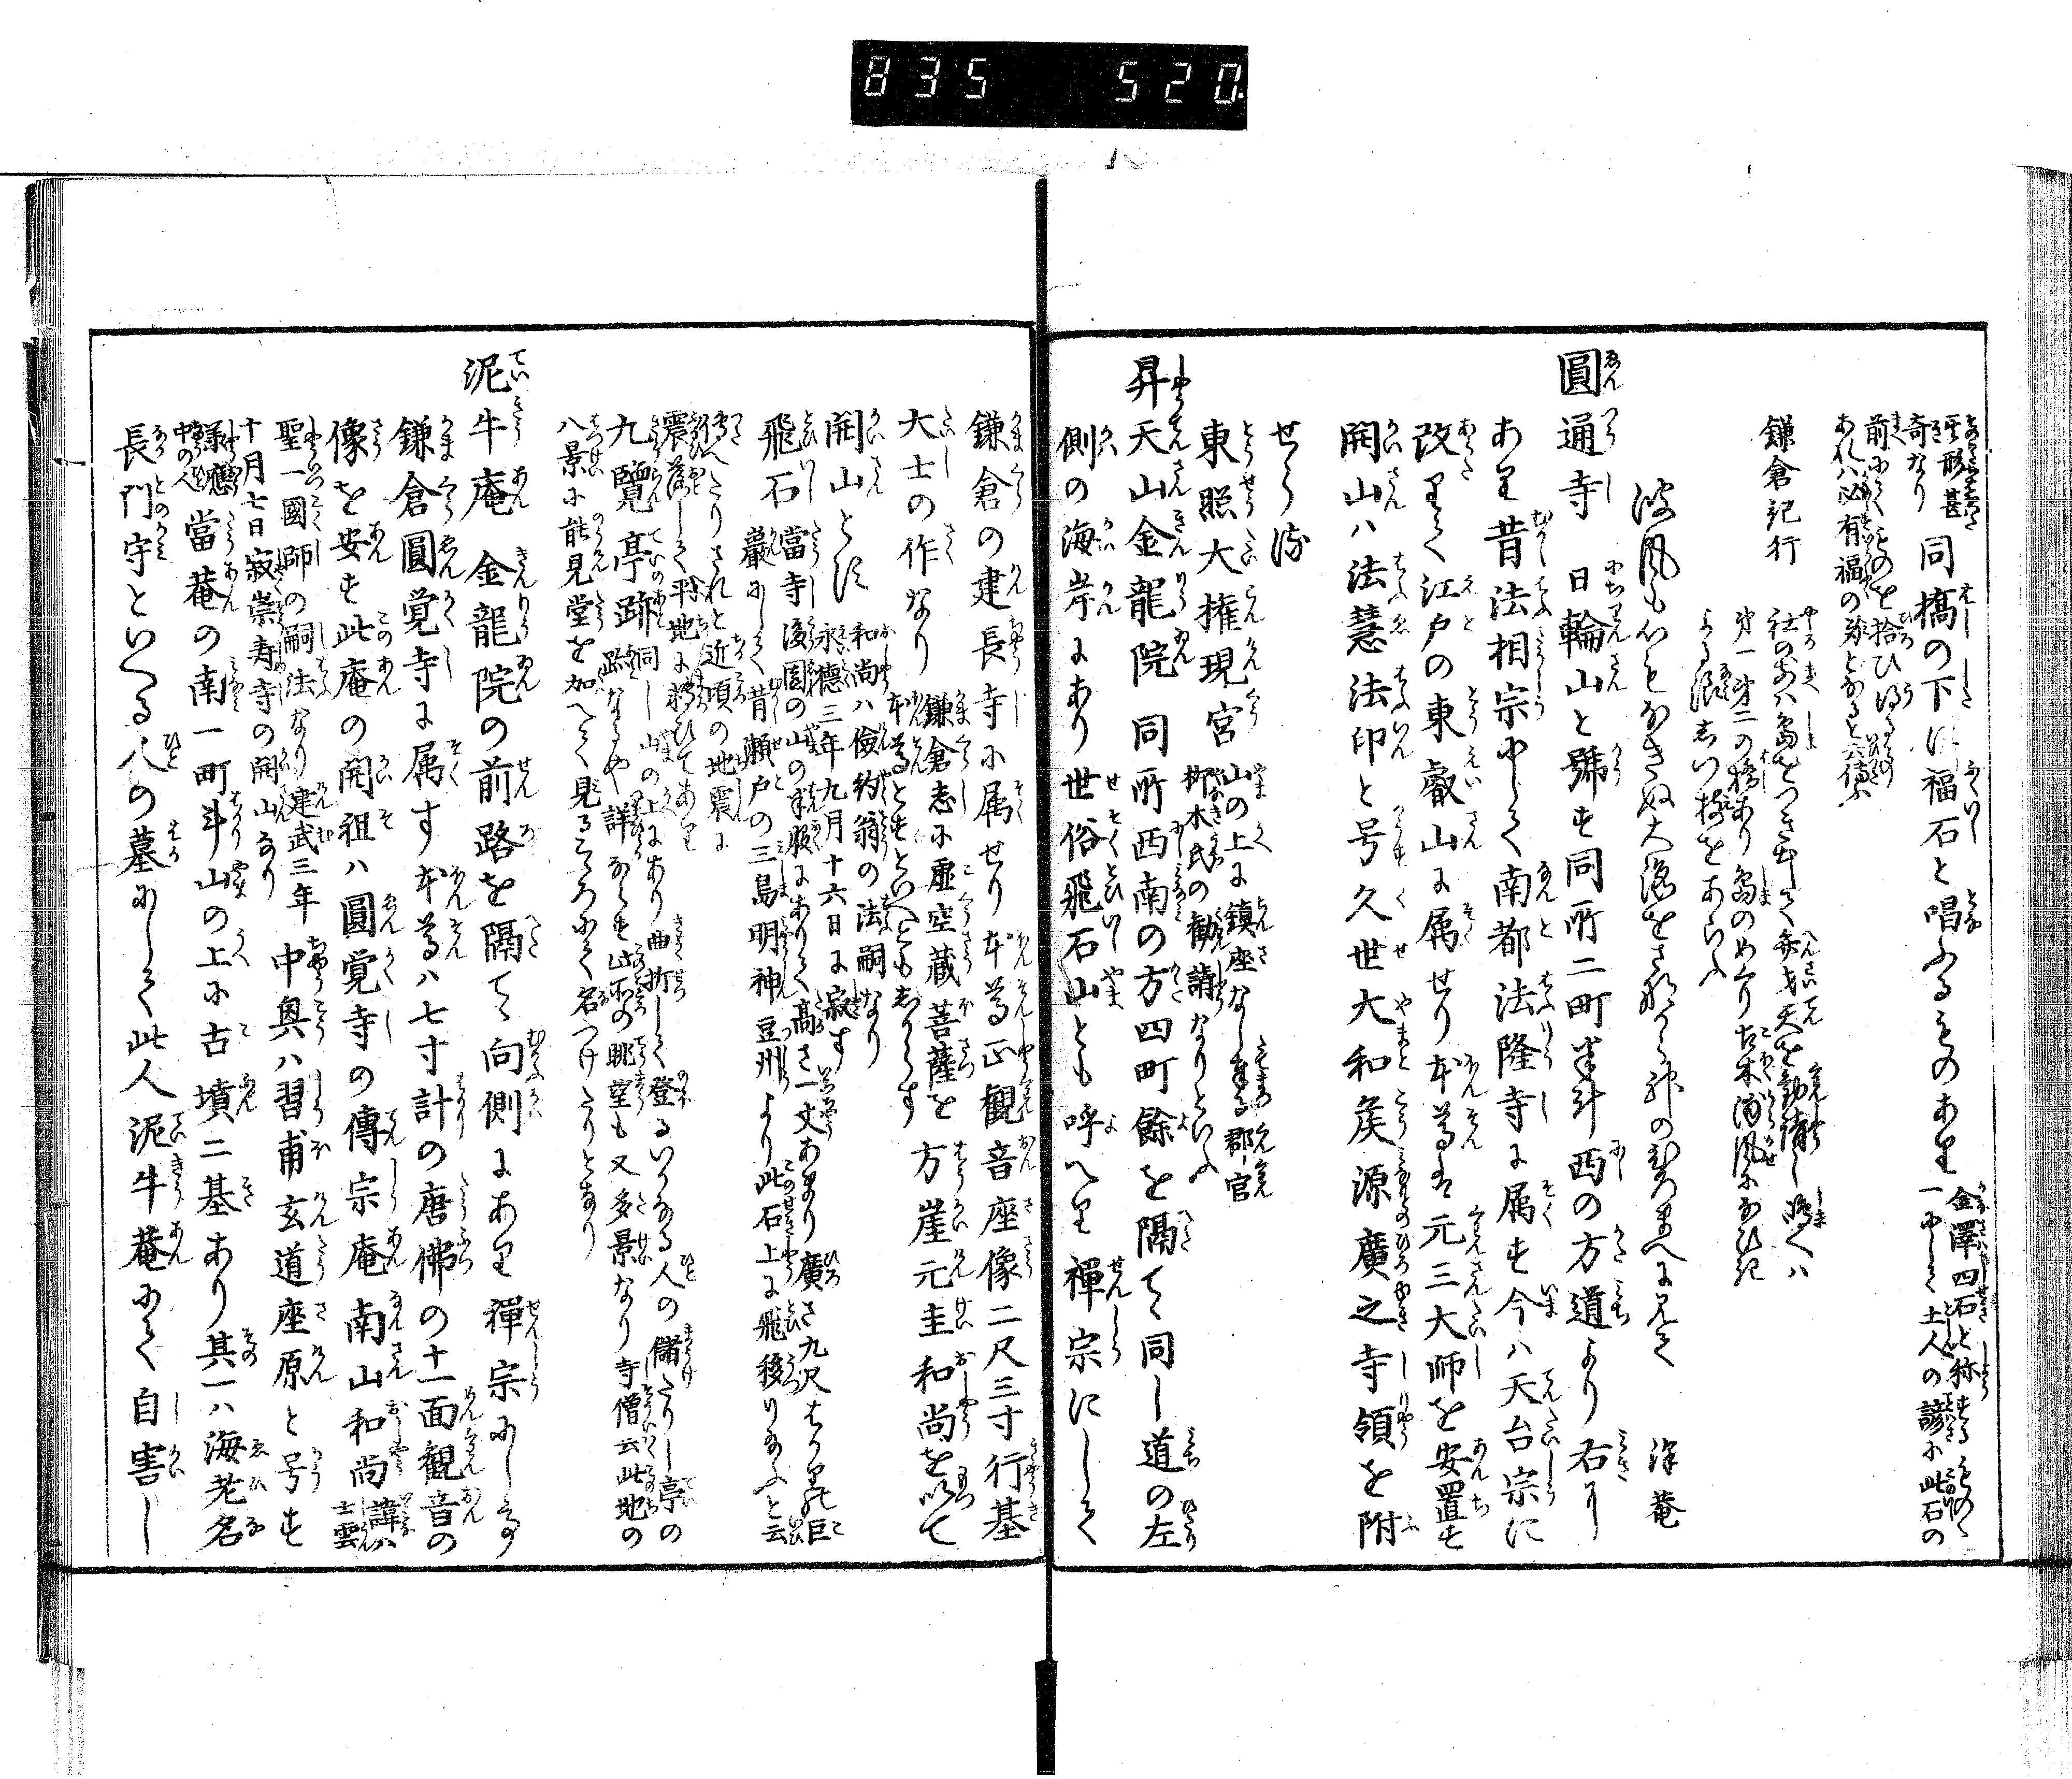 835 520
其形甚奇なり 同橋の下に福石と唱ふるものあり 金澤四石と称するものゝ一にして土人の諺に此石の
前にてものを拾ひ得るものあれハ必有福の身となると云傳ふ
鎌倉記行
社のまへハ島をつき出して弁才天を勧請し嶋へハ
第一第二の橋あり島のめくり古木浦風になひき
よる浪しつ枝をあらふ
波風も心をなき
澤菴
圓通寺 日輪山と號す同所二町半斗西の方道より右に
あり昔法相宗にして南都法隆寺に属す今ハ天台宗に
改りて江戸の東叡山に属せり本尊は元三大師を安置す
開山ハ法慧法印と号久世大和矦源廣之寺領を附
せらる
東照大権現宮 山の上に鎮座なし奉る郡官柳木氏の勧請なりといふ
昇天山金龍院 同所西南の方四町餘を隔て同し道の左
側の海岸にあり世俗飛石山とも呼へり禅宗にして
鎌倉の建長寺に属せり本尊正観音座像二尺三寸行基
大士の作なり 鎌倉志に虚空蔵菩薩を本尊とすといへともしからす 方崖元圭和尚を以て
開山とす 和尚ハ倹約翁の法嗣なり永徳三年九月十六日に寂す
飛石 當寺後園の山の半腹にありて高さ一丈あまり廣さ九尺はかりの巨
巖にして昔瀬戸の三島明神豆州より此石上に飛移り給ふと云
傳へたりされと近頃の地震に
震落して平地に轉ひてあり
九覽亭跡 同し山の上にあり曲折して登るいかなる人の儲たりし亭の
跡なるや詳ならす此所の眺望も又多景なり寺僧云此地の
八景に能見堂を加へて見るところにて名つけたりとなり
泥牛庵 金龍院の前路を隔て向側にあり禅宗にして
鎌倉圓覚寺に属す本尊ハ七寸計の唐佛の十一面観音の
像を安す此庵の開祖ハ圓覚寺の傳宗庵南山和尚 諱ハ士雲
聖一國師の嗣法なり建武三年
十月七日寂崇寿寺の開山なり 中興ハ習甫玄道座原と号す
當菴の南一町斗山の上に古墳二基あり其一ハ海老名
長門守といへる人の墓にして此人泥牛菴にて自害し